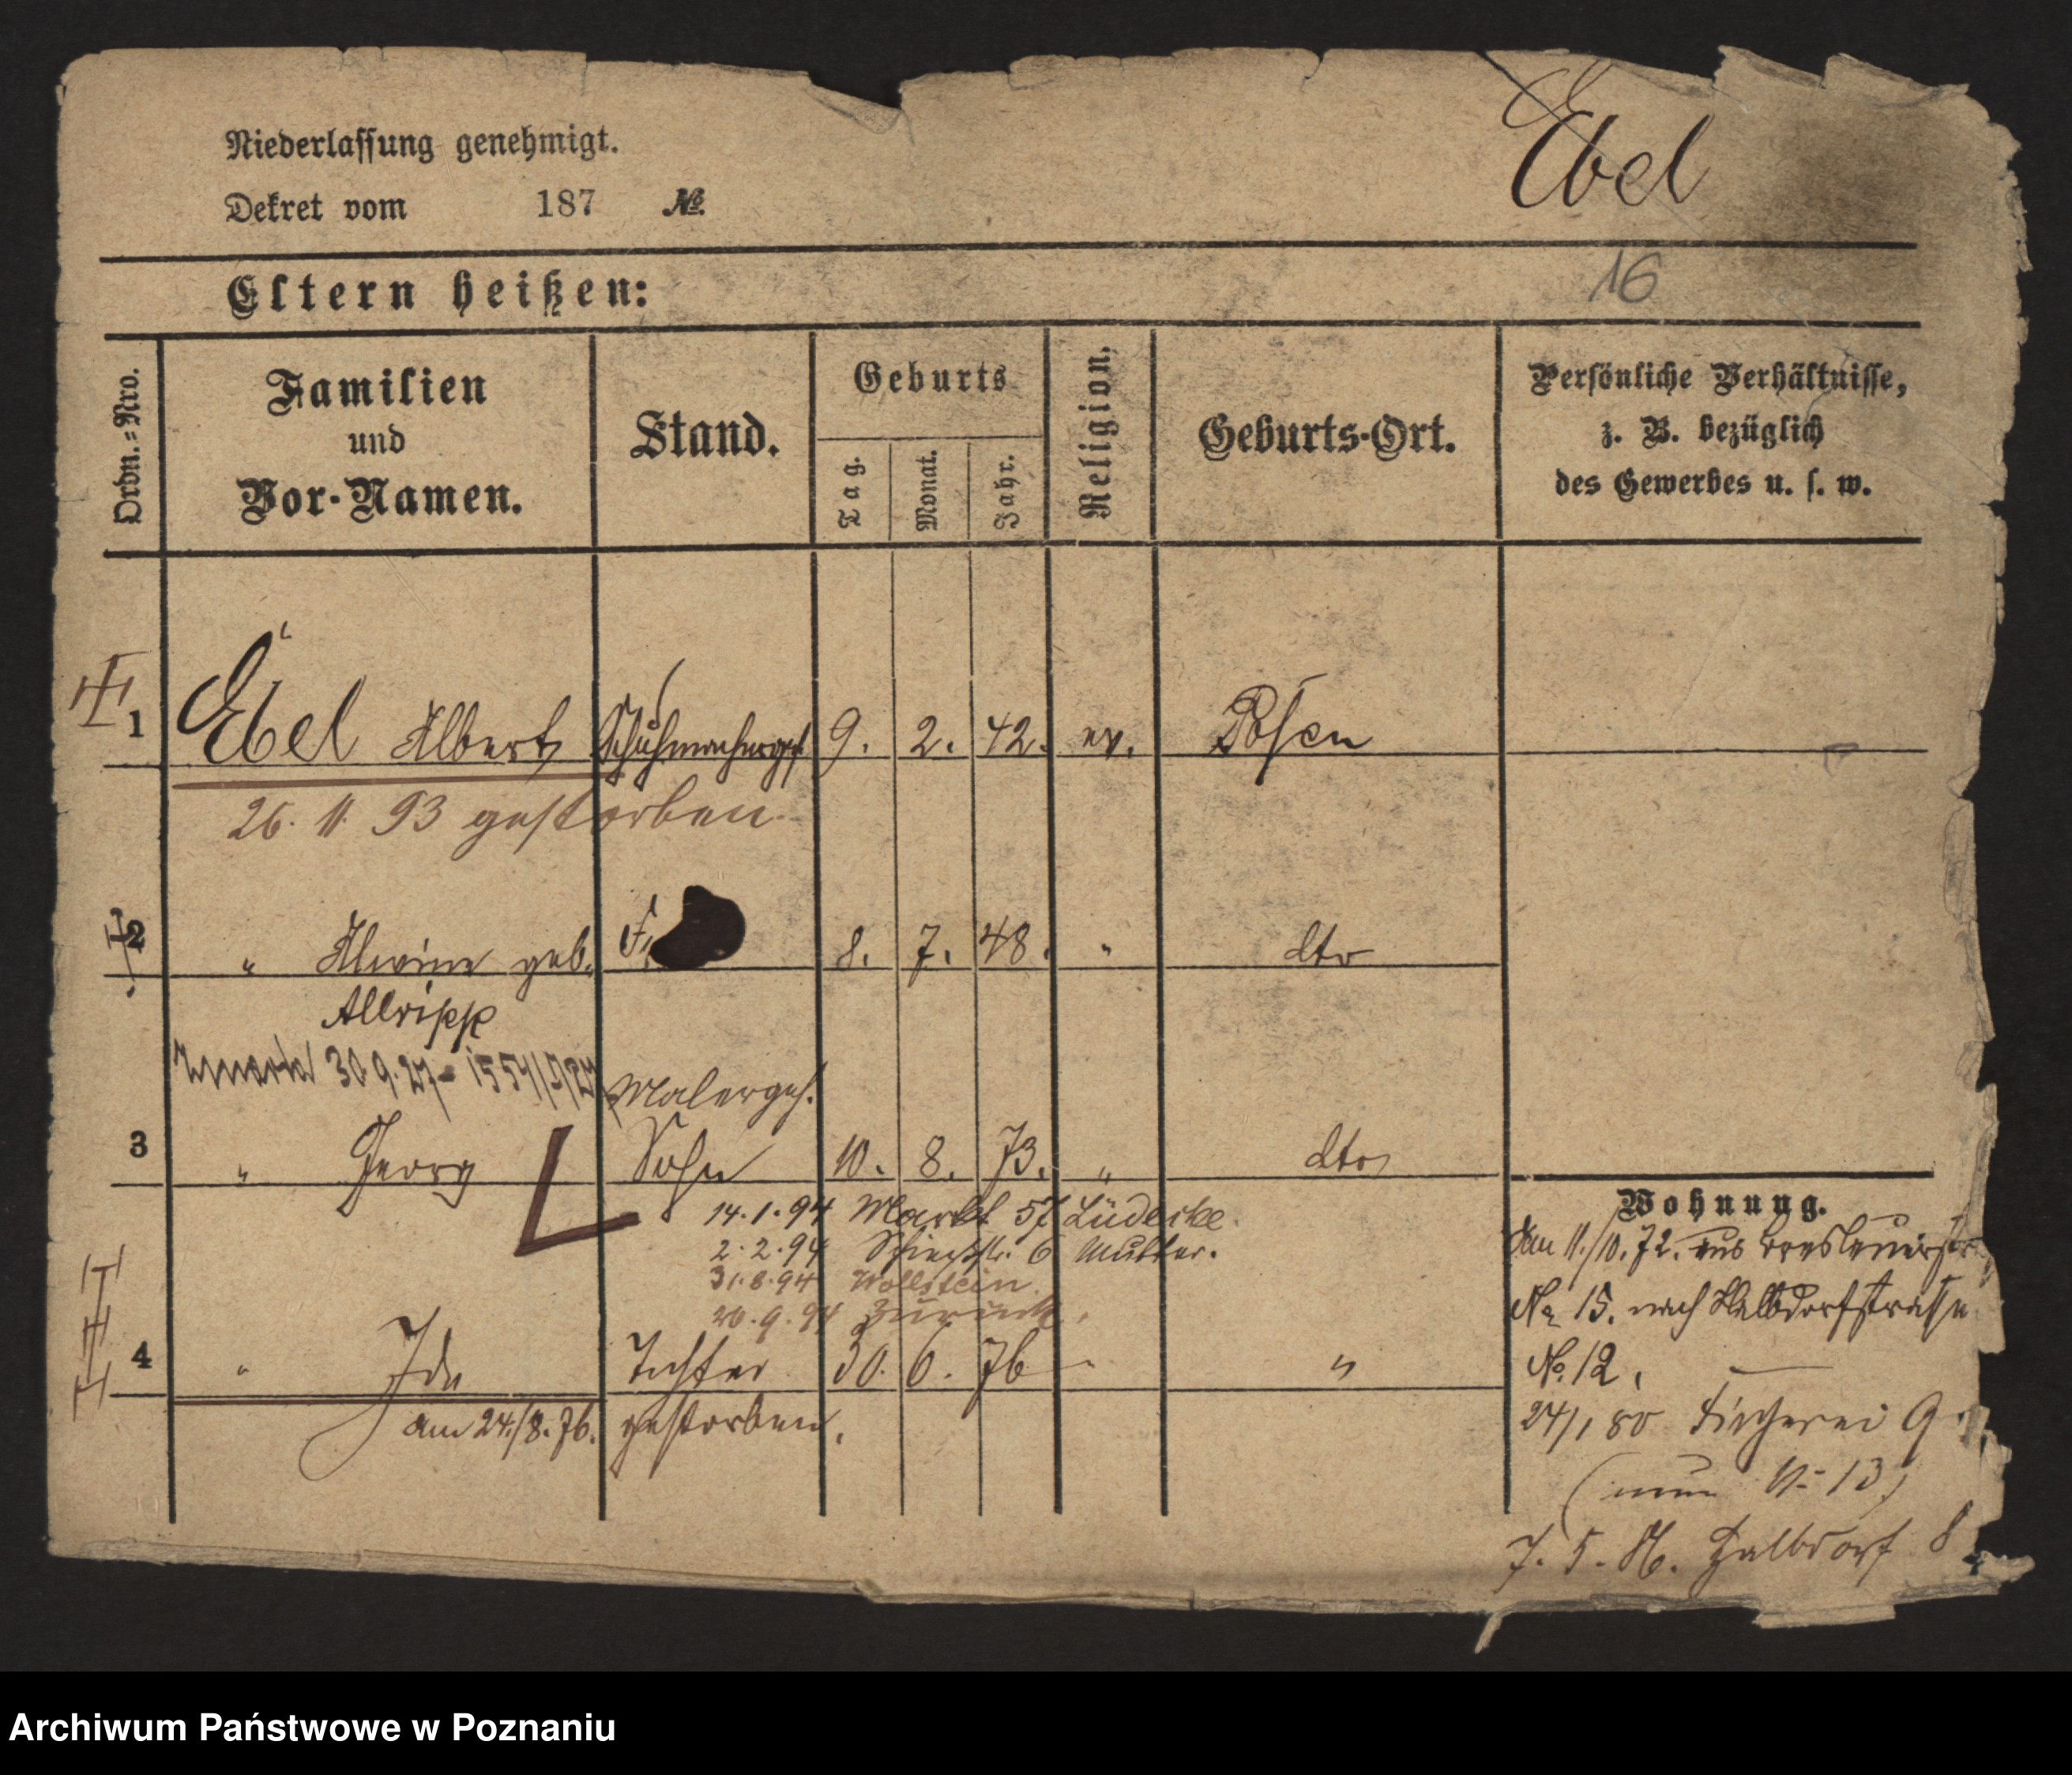 Ebel
Niederlassung genehmigt.
Dekret vom 187 No.
16
Eltern heißen:
Ordn.=Nro.
Familien
und
Vor-Namen.
Stand.
Geburts
Tag.
Monat.
Jahr.
Religion.
Geburts-Ort.
Persönliche Verhältnisse,
z. B. bezüglich
des Gewerbes u. s. w.
1 Ebel Albert Schuhmacherges. 9. 2. 42. ev. Posen
26. 11. 93 gestorben.
2 " Alwine geb. 8. 7. 48. " dto
30.9.27
Malergeh.
3 " Georg Sohn 10. 8. 73. " dto
14.1.94 Markt 57 Lüdecke.
2.2.94 6 Mutter.
31.8.94 Wollstein.
20.9.94 Zurück.
4 " Ida Tochter 30. 6. 76 " "
am 24./8.76. gestorben.
Wohnung.
Am 11./10.72. aus Breslauerstr
No 15. nach Halbdorfstrasse
No. 12,
24/1 80 Fischerei 9
(nun N= 13)
7. 5. Halbdorf 8
Archiwum Państwowe w Poznaniu